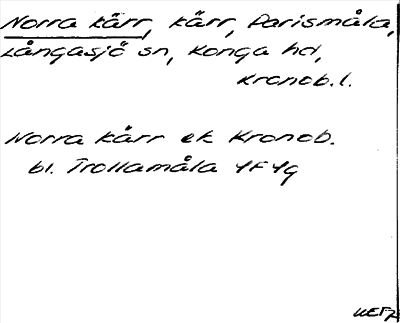 Norra kärr, kärr, Parismåla,
Långasjö sn, Konga hd,
Kronob.l.
Norra kärr ek Kronob.
bl. Trollamåla 4F4g